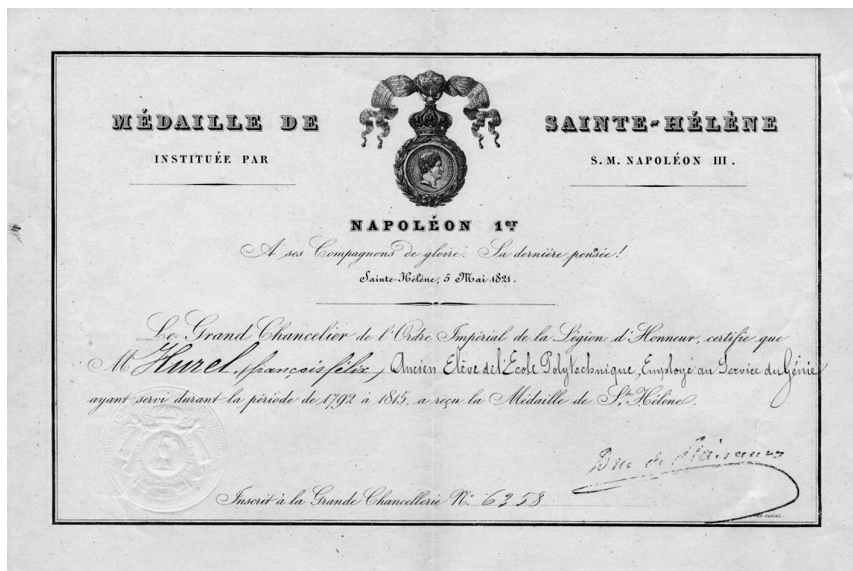 MÉDAILLE DE SAINTE-HÉLÈNE
INSTITUÉE PAR S. M. NAPOLÉON III.
NAPOLÉON 1er
A ses Compagnons de gloire. Sa dernière pensée!
Sainte-Hélène, 5 Mai 1821.
Le Grand Chancelier de l'Ordre Impérial de la Légion d'Honneur, certifie que
Mr Hurel (françois félix) Ancien Elève de l'Ecole Polytechnique, Employé au Service du Génie
ayant servi durant la période de 1792 à 1815, a reçu la Médaille de Ste Hélène.
Duc de Plaisance
Inscrit à la Grande Chancellerie No. 6358